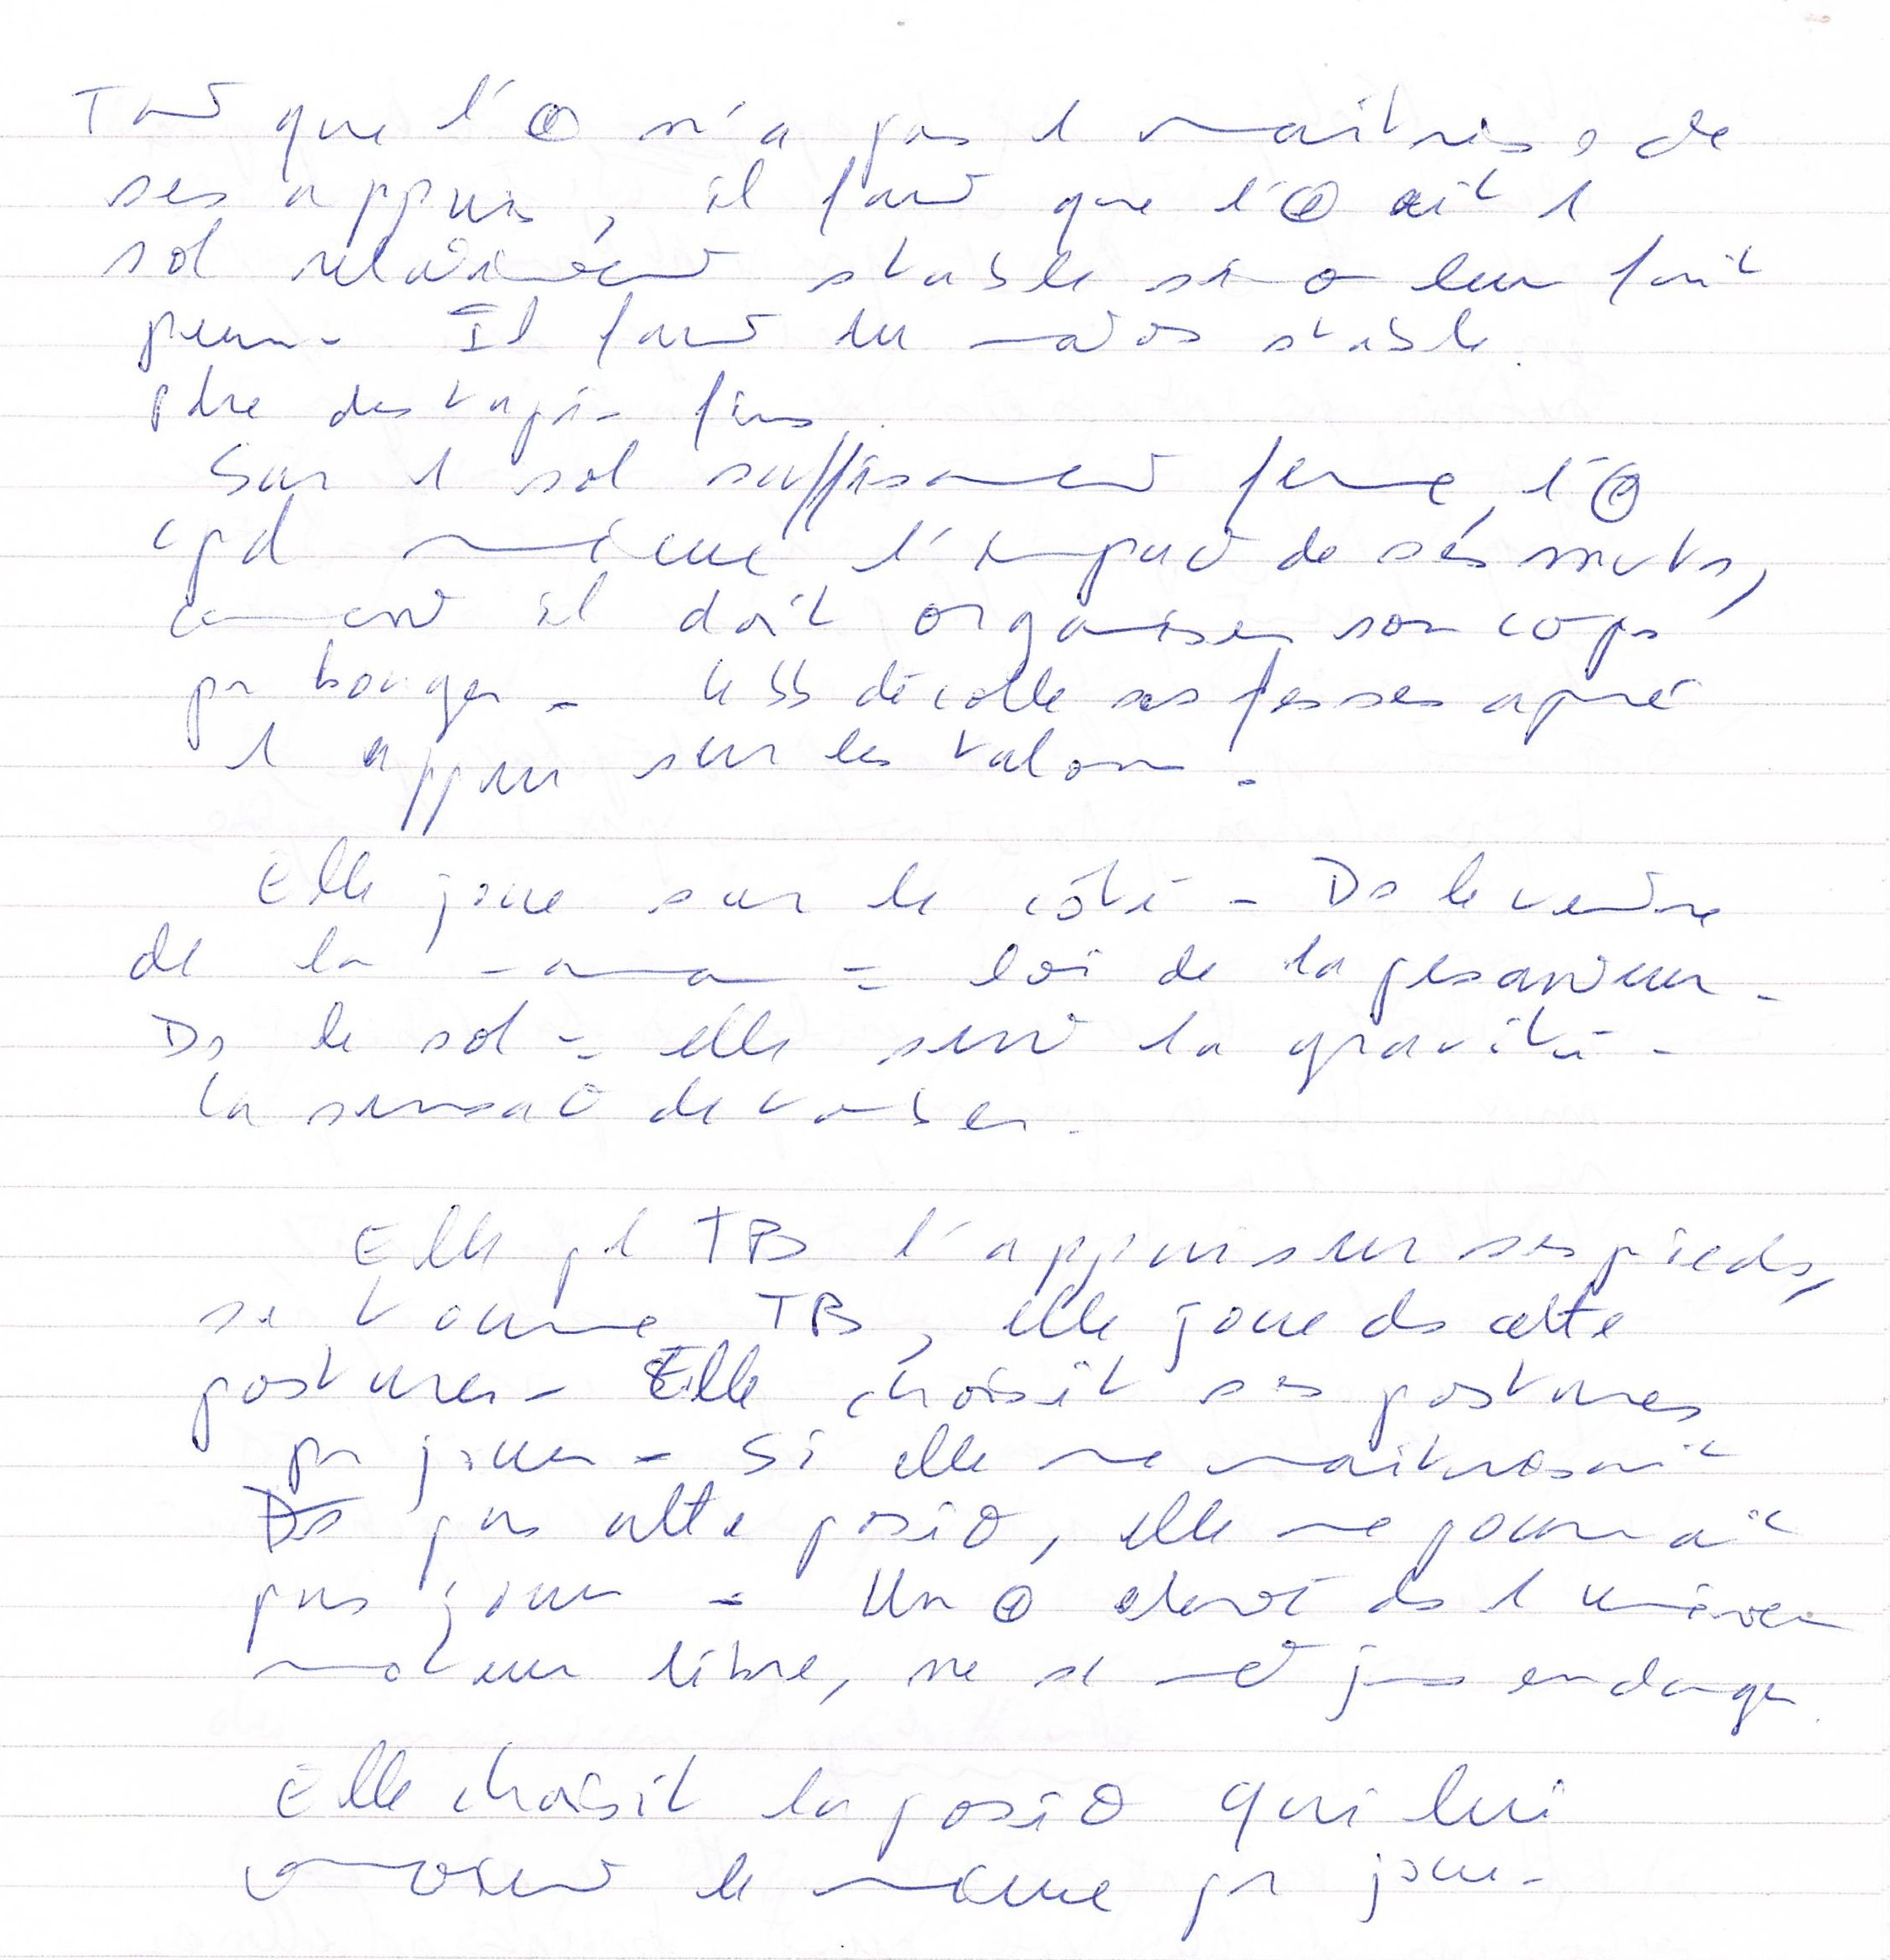 Tant que l'⊕ n'a pas 1 maîtrise de
ses appuis, il faut que l'⊕ ait 1
sol relativement stable sino leur fait
peur - Il faut un matos stable.
ptre des tapis fins.
Sur 1 sol suffisament ferme, l'⊕
cpd mieux l'impact de ses mvts,
comment il doit organiser son corps
pr bouger - le bb décolle ses fesses après
1 appui sur les talons.
Elle joue sur le côté - Ds le ventre
de la maman = loi de la pesanteur -
Ds le sol = elle sent la gravité -
la sensatO de tomber.
Elle pd TB l'appui sur ses pieds,
se tourne TB, elle joue ds cette
posture - Elle choisit ses postures
pr jouer - Si elle ne maîtrisait
Ds pas cette posiO, elle ne pourrait
pas jouer - Un ⊕ élevé ds 1 univers
moteur libre, ne se met jms en danger.
Elle choisit la posiO qui lui
convient le mieux pr jouer -